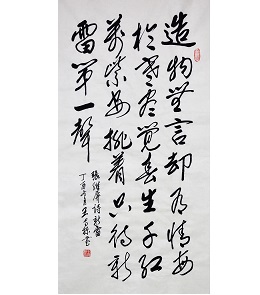 造物無言却有情每
於寒尽覺春生千红
萬紫安排着只待新
雷第一聲
張維屏詩新雷
丁亥